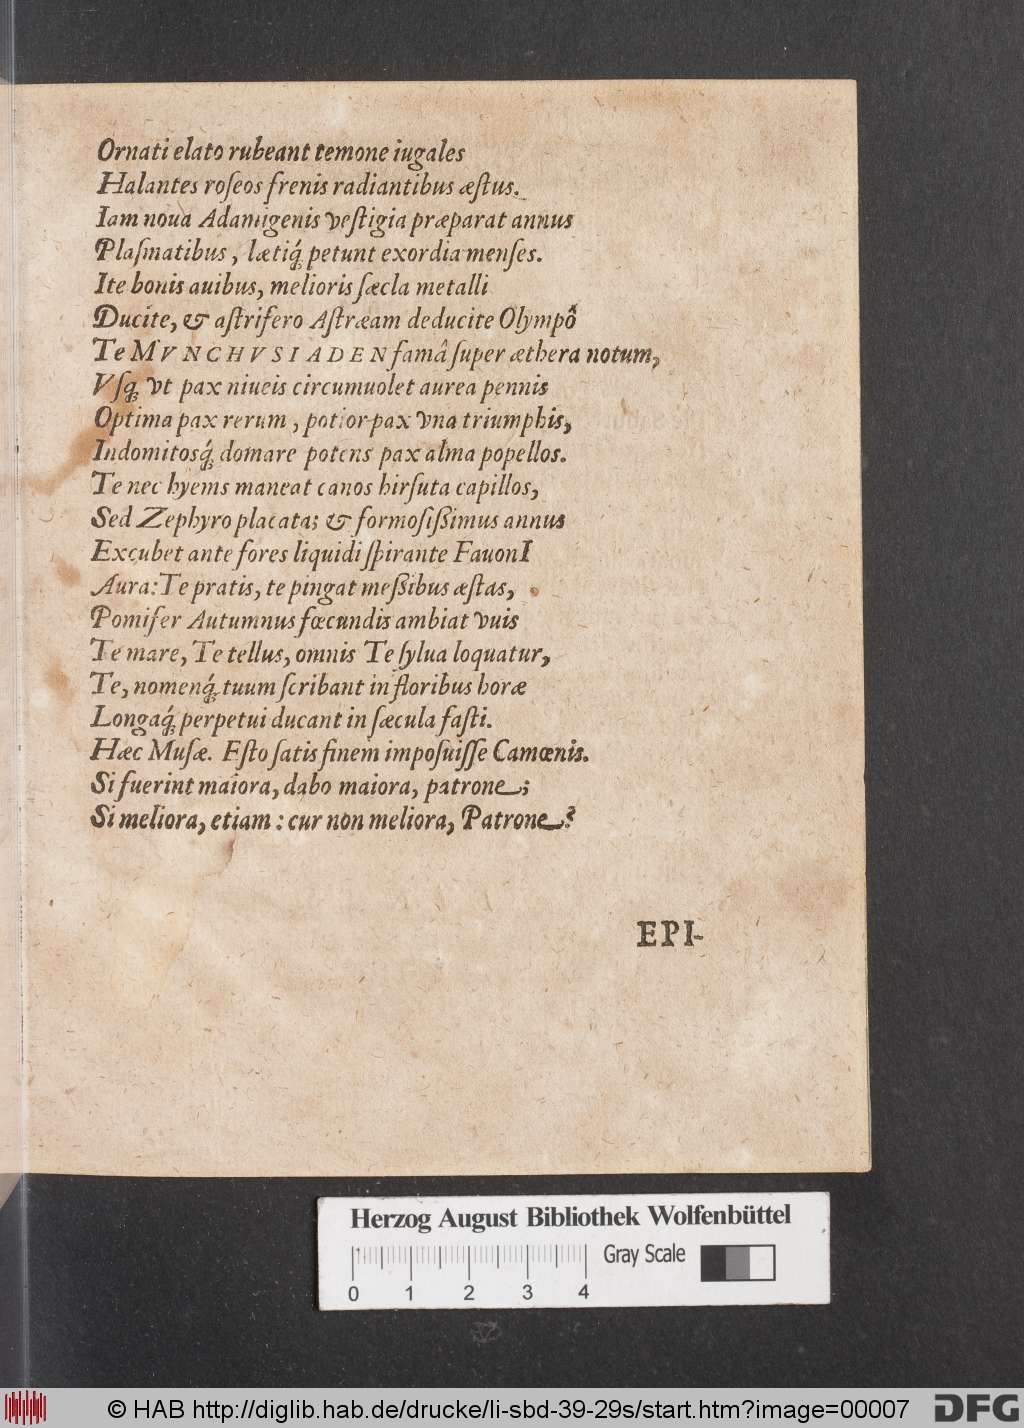 Ornati elato rubeant temone iugales
Halantes roſeos frenis radiantibus æſtus.
Iam noua Adamigenis veſtigia præparat annus
Plaſmatibus, lætiq́; petunt exordia menſes.
Ite bonis auibus, melioris ſæcla metalli
Ducite, & aſtrifero Aſtræam deducite Olympô
Te MVNCHVSIADEN famâ ſuper æthera notum,
Vſq; vt pax niueis circumuolet aurea pennis
Optima pax rerum, potior pax vna triumphis,
Indomitosq́; domare potens pax alma popellos.
Te nec hyems maneat canos hirſuta capillos,
Sed Zephyro placata; & formoſißimus annus
Excubet ante fores liquidi ſpirante FauonI
Aura: Te pratis, te pingat meßibus æſtas,
Pomifer Autumnus fœcundis ambiat vuis
Te mare, Te tellus, omnis Te ſylua loquatur,
Te, nomenq́; tuum ſcribant in floribus horæ
Longaq́; perpetui ducant in ſæcula faſti.
Hæc Muſæ. Eſto ſatis finem impoſuiſſe Camœnis.
Si fuerint maiora, dabo maiora, patrone;
Si meliora, etiam: cur non meliora, Patrone?
EPI-
Herzog August Bibliothek Wolfenbüttel
Gray Scale
0 1 2 3 4
© HAB http://diglib.hab.de/drucke/li-sbd-39-29s/start.htm?image=00007
DFG